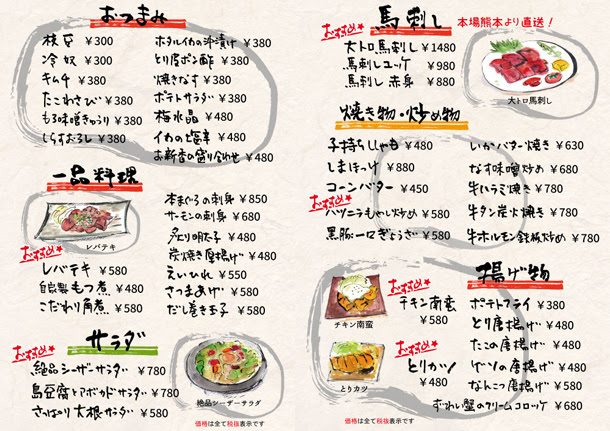 おつまみ
枝豆 ¥300
冷奴 ¥300
キムチ ¥380
たこわさび ¥380
もろ味噌きゅうり ¥380
しらすおろし ¥380
ホタルイカの沖漬け ¥380
とり皮ポン酢 ¥380
焼きなす ¥380
ポテトサラダ ¥380
梅水晶 ¥480
イカの塩辛 ¥480
お新香の盛り合わせ ¥480
一品料理
レバテキ
おすすめ
レバテキ ¥580
自家製もつ煮 ¥480
こだわり角煮 ¥580
本まぐろの刺身 ¥850
サーモンの刺身 ¥680
炙り明太子 ¥480
炭焼き厚揚げ ¥480
えいひれ ¥550
さつまあげ ¥580
だし巻き玉子 ¥580
サラダ
おすすめ
絶品シーザーサラダ ¥780
島豆腐とアボカドサラダ ¥780
さっぱり大根サラダ ¥580
絶品シーザーサラダ
価格は全て税抜表示です
馬刺し
本場熊本より直送!
おすすめ
大トロ馬刺し ¥1480
馬刺しユッケ ¥980
馬刺し 赤身 ¥880
大トロ馬刺し
焼き物・炒め物
子持ちししゃも ¥480
しまほっけ ¥880
コーンバター ¥450
おすすめ
ハツニラもやし炒め ¥580
黒豚一口ぎょうざ ¥580
いかバター焼き ¥630
なす味噌炒め ¥680
牛ハラミ焼き ¥780
牛タン炭火焼き ¥780
牛ホルモン鉄板炒め ¥780
揚げ物
チキン南蛮
おすすめ
チキン南蛮
¥580
とりカツ
おすすめ
とりカツ
¥480
ポテトフライ ¥380
とり唐揚げ ¥480
たこの唐揚げ ¥480
ゲソの唐揚げ ¥480
なんこつ唐揚げ ¥580
ずわい蟹のクリームコロッケ ¥680
価格は全て税抜表示です